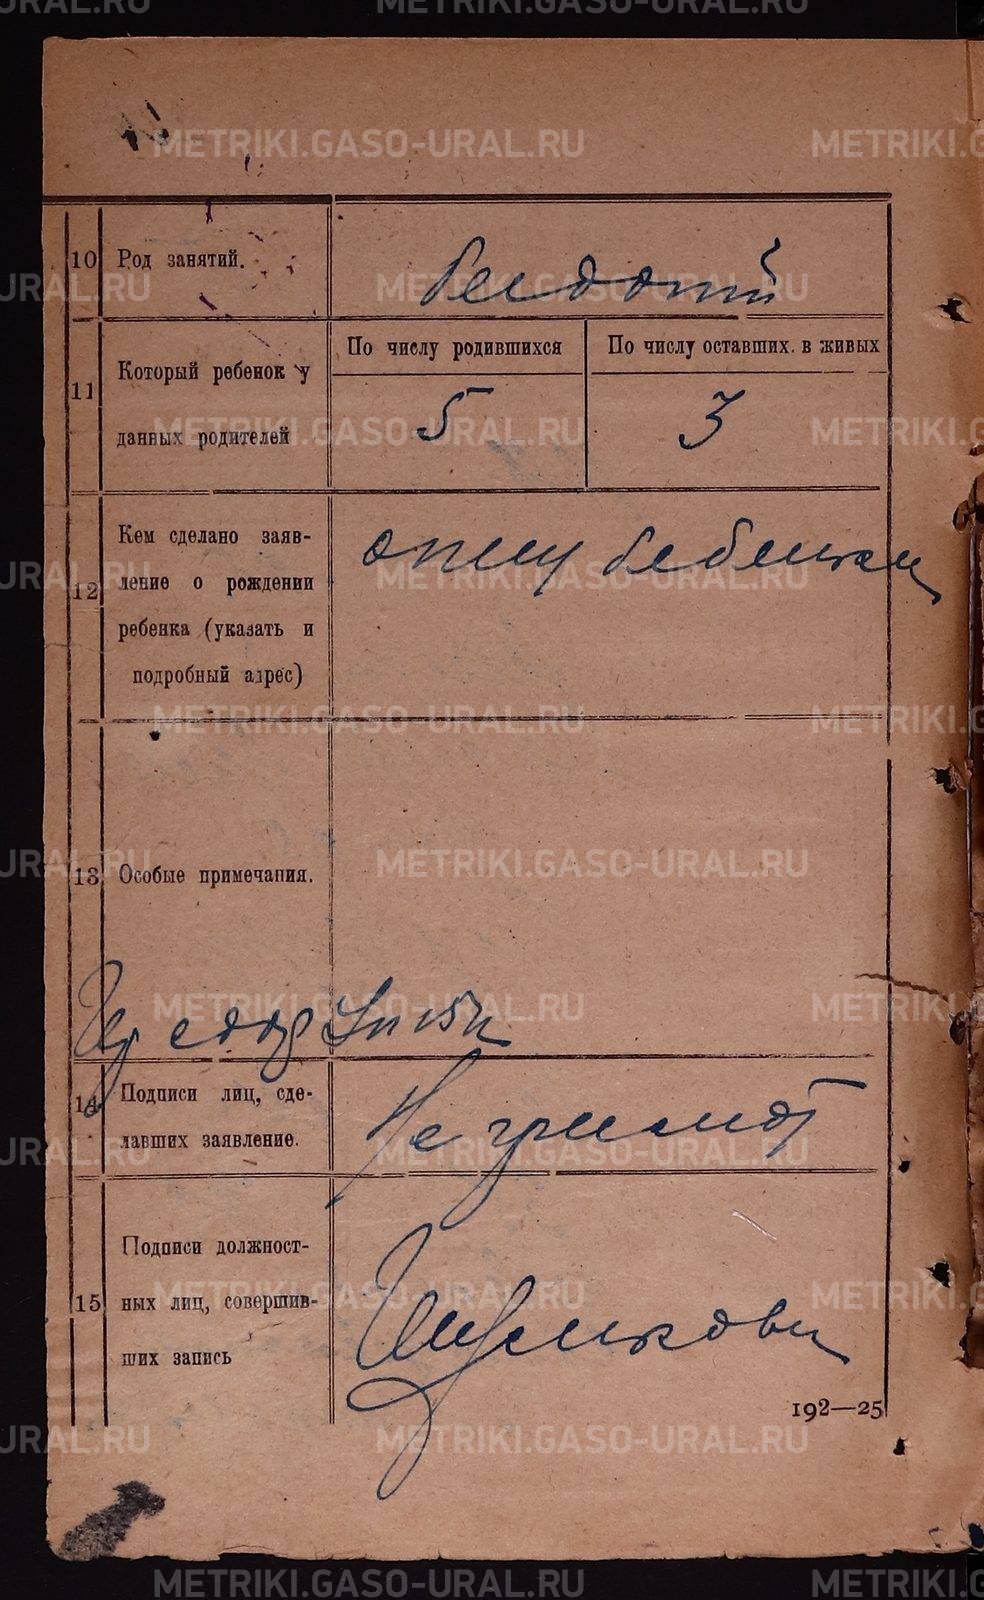 METRIKI.GASO-URAL.RU
10 Род занятий.
11 Который ребенок у
данных родителей
По числу родившихся
По числу оставших. в живых
5
3
12 Кем сделано заяв-
ление о рождении
ребенка (указать и
подробный адрес)
отец
13 Особые примечания.
14 Подписи лиц, сде-
лавших заявление.
Не грамот
15 Подписи должност-
ных лиц, совершив-
ших запись
192—25